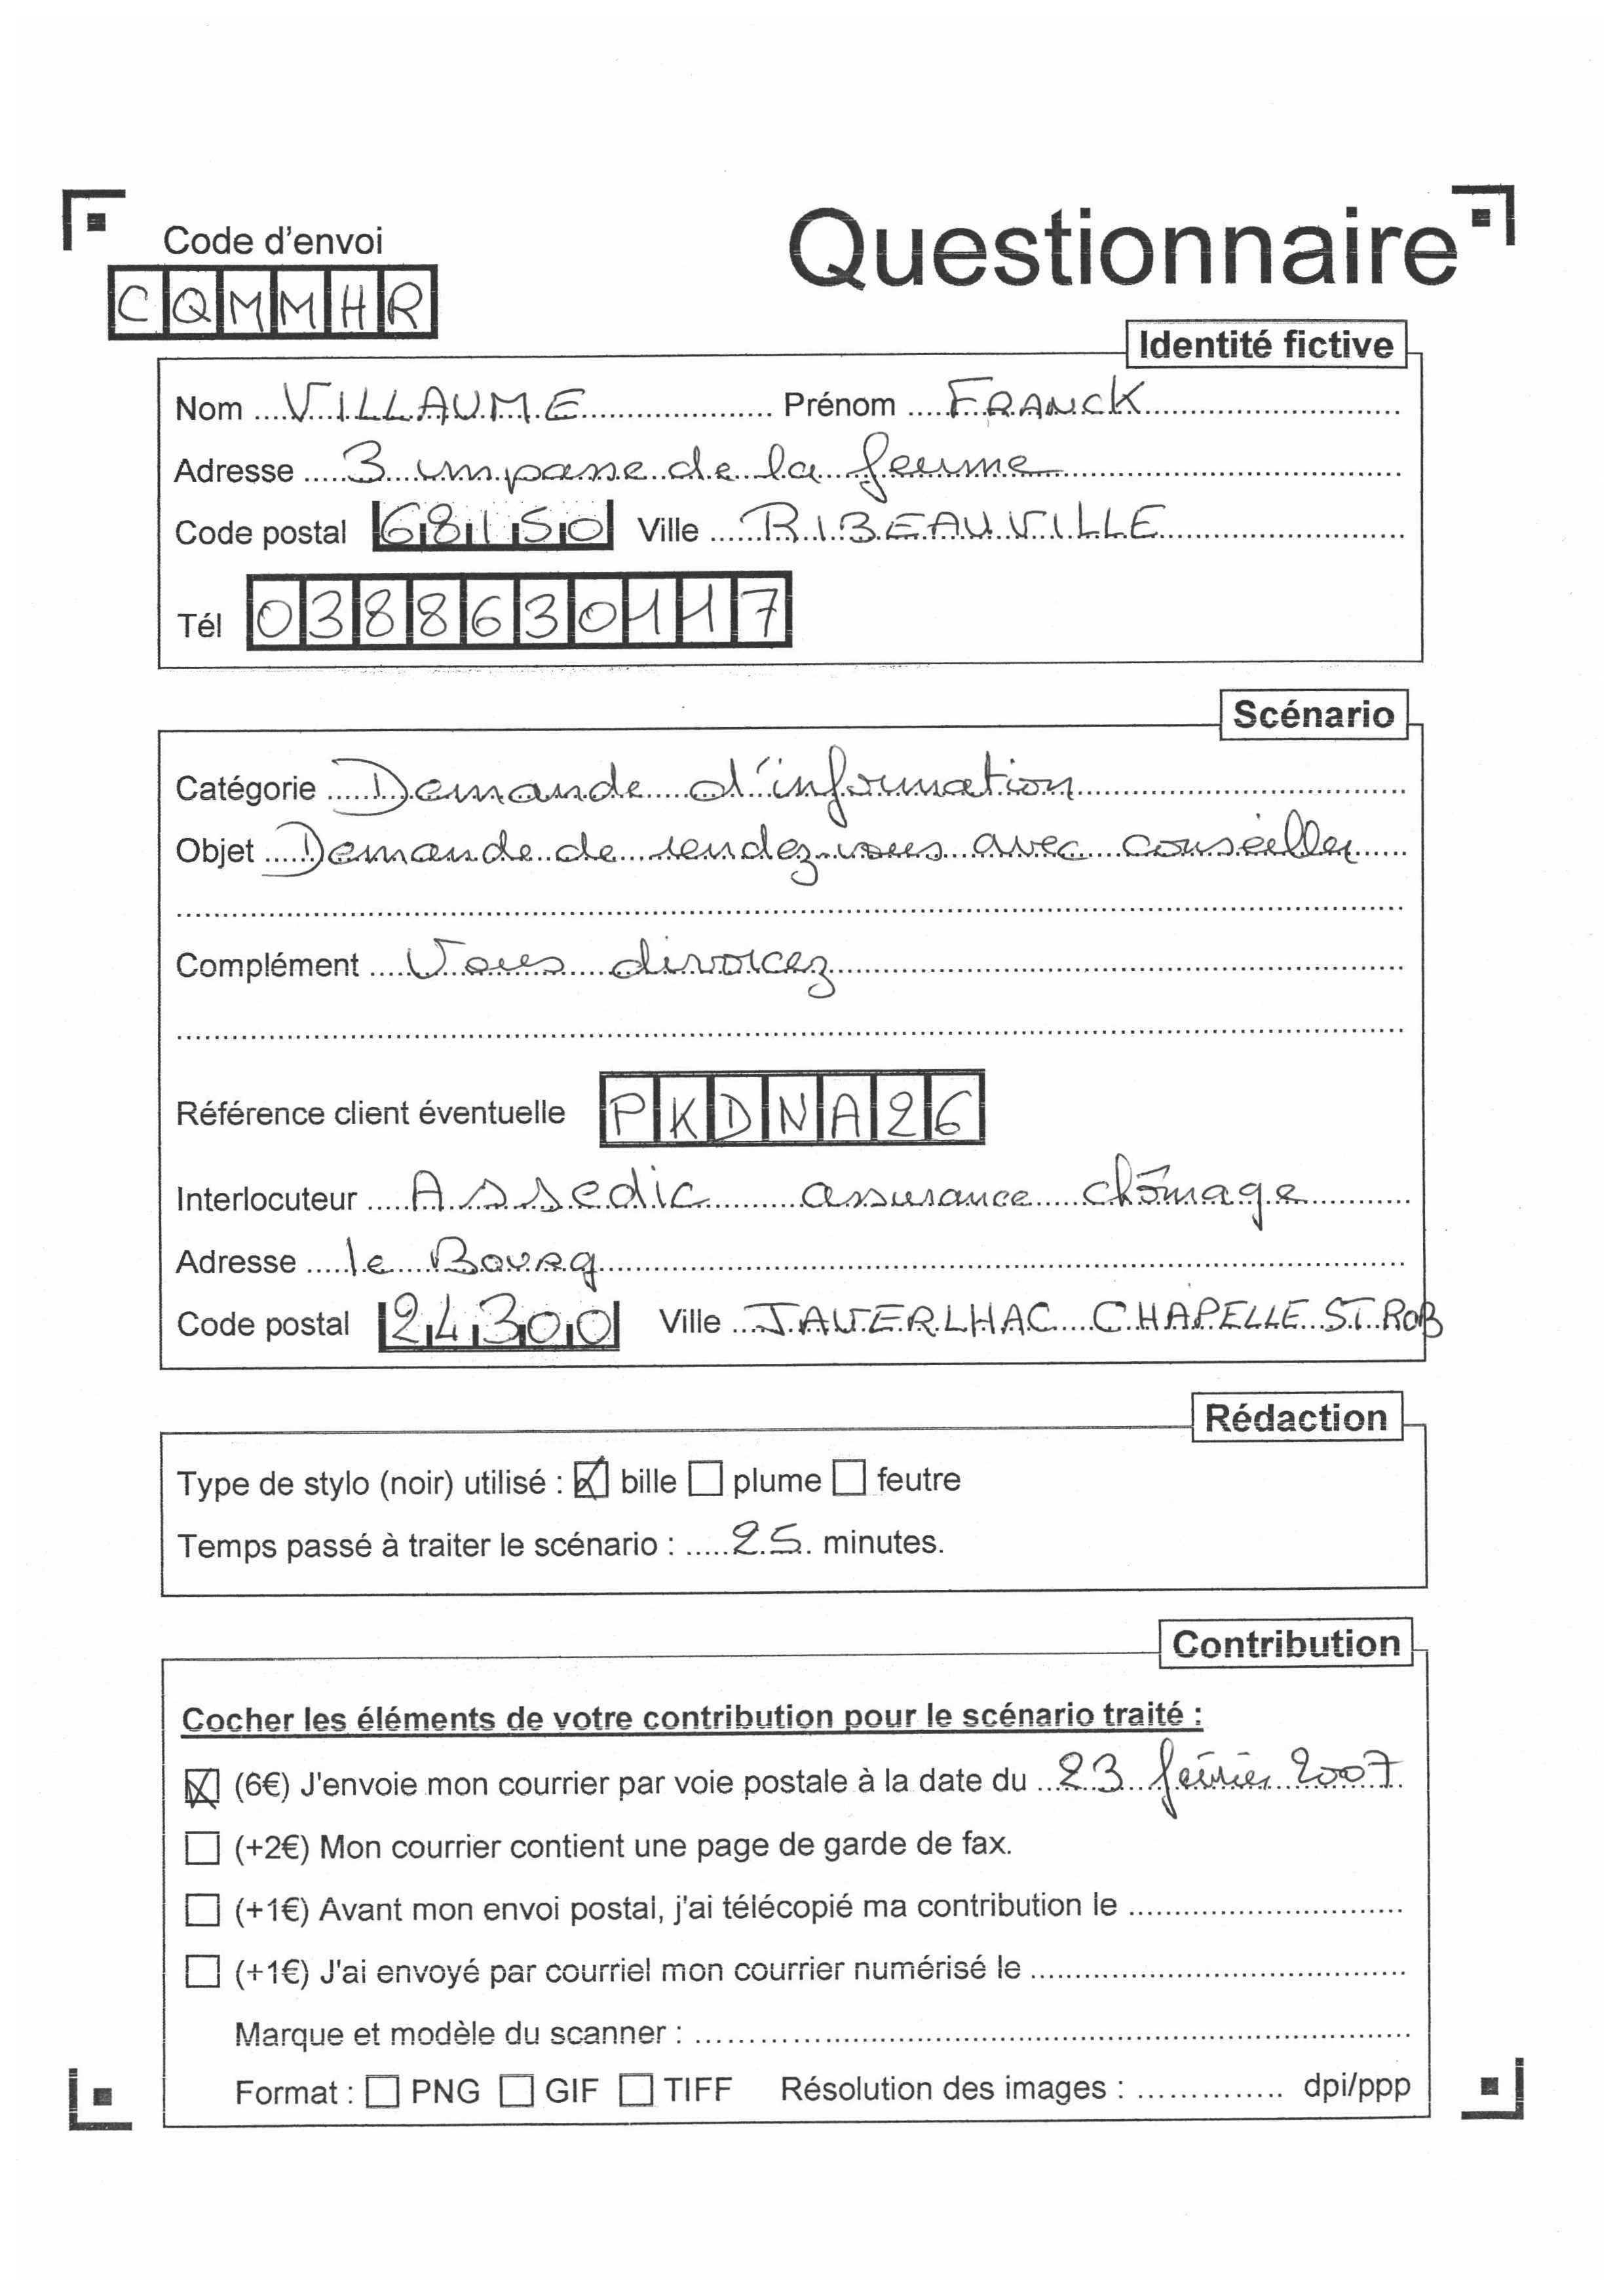 Code d'envoi
CQMMHR
Questionnaire
Identité fictive
Nom VILLAUME Prénom FRANCK
Adresse 3 impasse de la ferme
Code postal 68150 Ville RIBEAUVILLE
Tél 0388630117
Scénario
Catégorie Demande d'information
Objet Demande de rendez-vous avec conseiller
Complément Vous divorcez
Référence client éventuelle PKDNA26
Interlocuteur Assedic assurance chômage
Adresse le Bourg
Code postal 24300 Ville JAVERLHAC CHAPELLE ST ROB
Rédaction
Type de stylo (noir) utilisé : ☒ bille ☐ plume ☐ feutre
Temps passé à traiter le scénario : 25 minutes.
Contribution
Cocher les éléments de votre contribution pour le scénario traité :
☒ (6€) J'envoie mon courrier par voie postale à la date du 23 février 2007
☐ (+2€) Mon courrier contient une page de garde de fax.
☐ (+1€) Avant mon envoi postal, j'ai télécopié ma contribution le
☐ (+1€) J'ai envoyé par courriel mon courrier numérisé le
Marque et modèle du scanner :
Format : ☐ PNG ☐ GIF ☐ TIFF Résolution des images : dpi/ppp